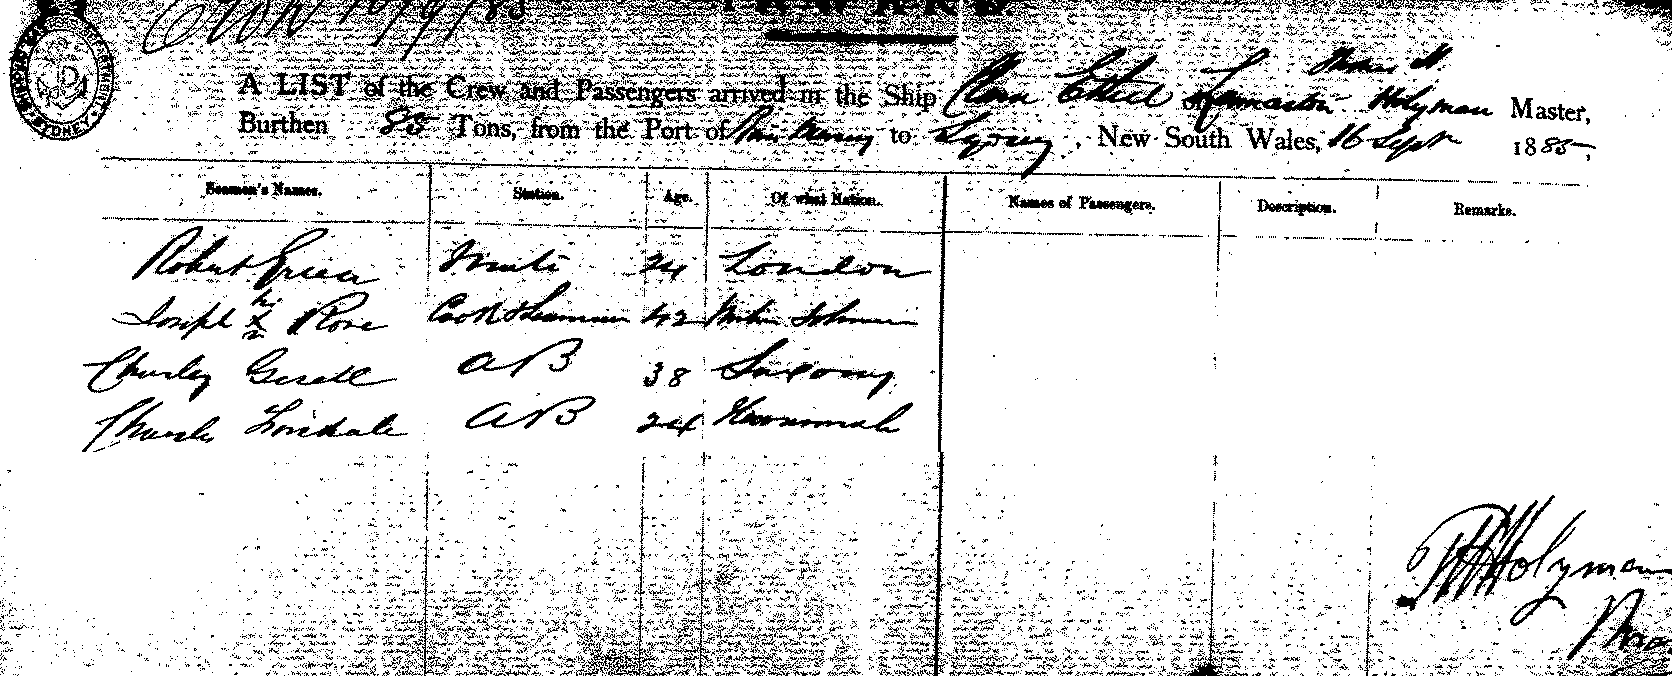 INWARD
A LIST of the Crew and Passengers arrived in the Ship Clara Ethel of Launceston Thomas H Holyman Master,
Burthen 85 Tons, from the Port of to Sydney, New South Wales, 16 Sept 1885,
Seamen's Names. Station. Age. Of what Nation. Names of Passengers. Description. Remarks.
Robert Green Mate 24 London
Joseph his X Rose Cook & Seaman 42
Charley Gesell AB 38 Saxony
Charles Lonsdale AB 24
Holyman